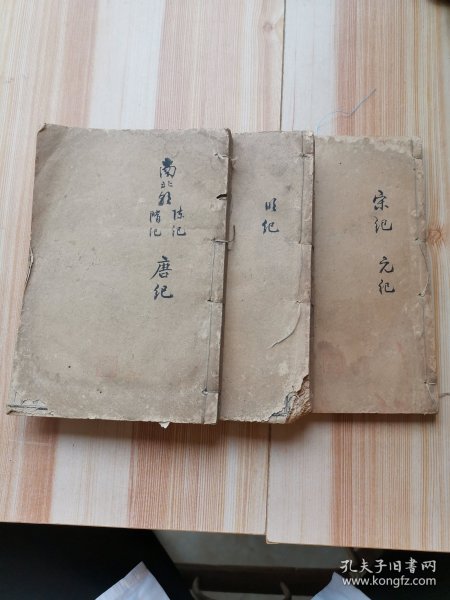 南北朝
陈纪
隋纪
唐纪
明纪
宋纪 元纪
孔夫子旧书网
www.kongfz.com